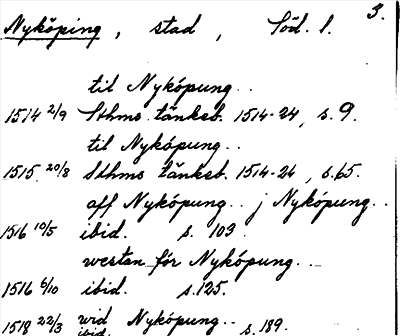 3.
Nyköping, stad, Söd. l.
til Nyköpung..
1514 2/9 Sthms tänkeb. 1514-24, s. 9.
til Nyköpung..
1515 20/8 Sthms tänkeb. 1514-24, s. 65.
aff Nyköpung.. j Nyköpung..
1516 10/5 ibid. s. 103
westan för Nyköpung..
1516 6/10 ibid. s. 125.
wid Nyköpung..
1518 22/3 ibid. s. 189